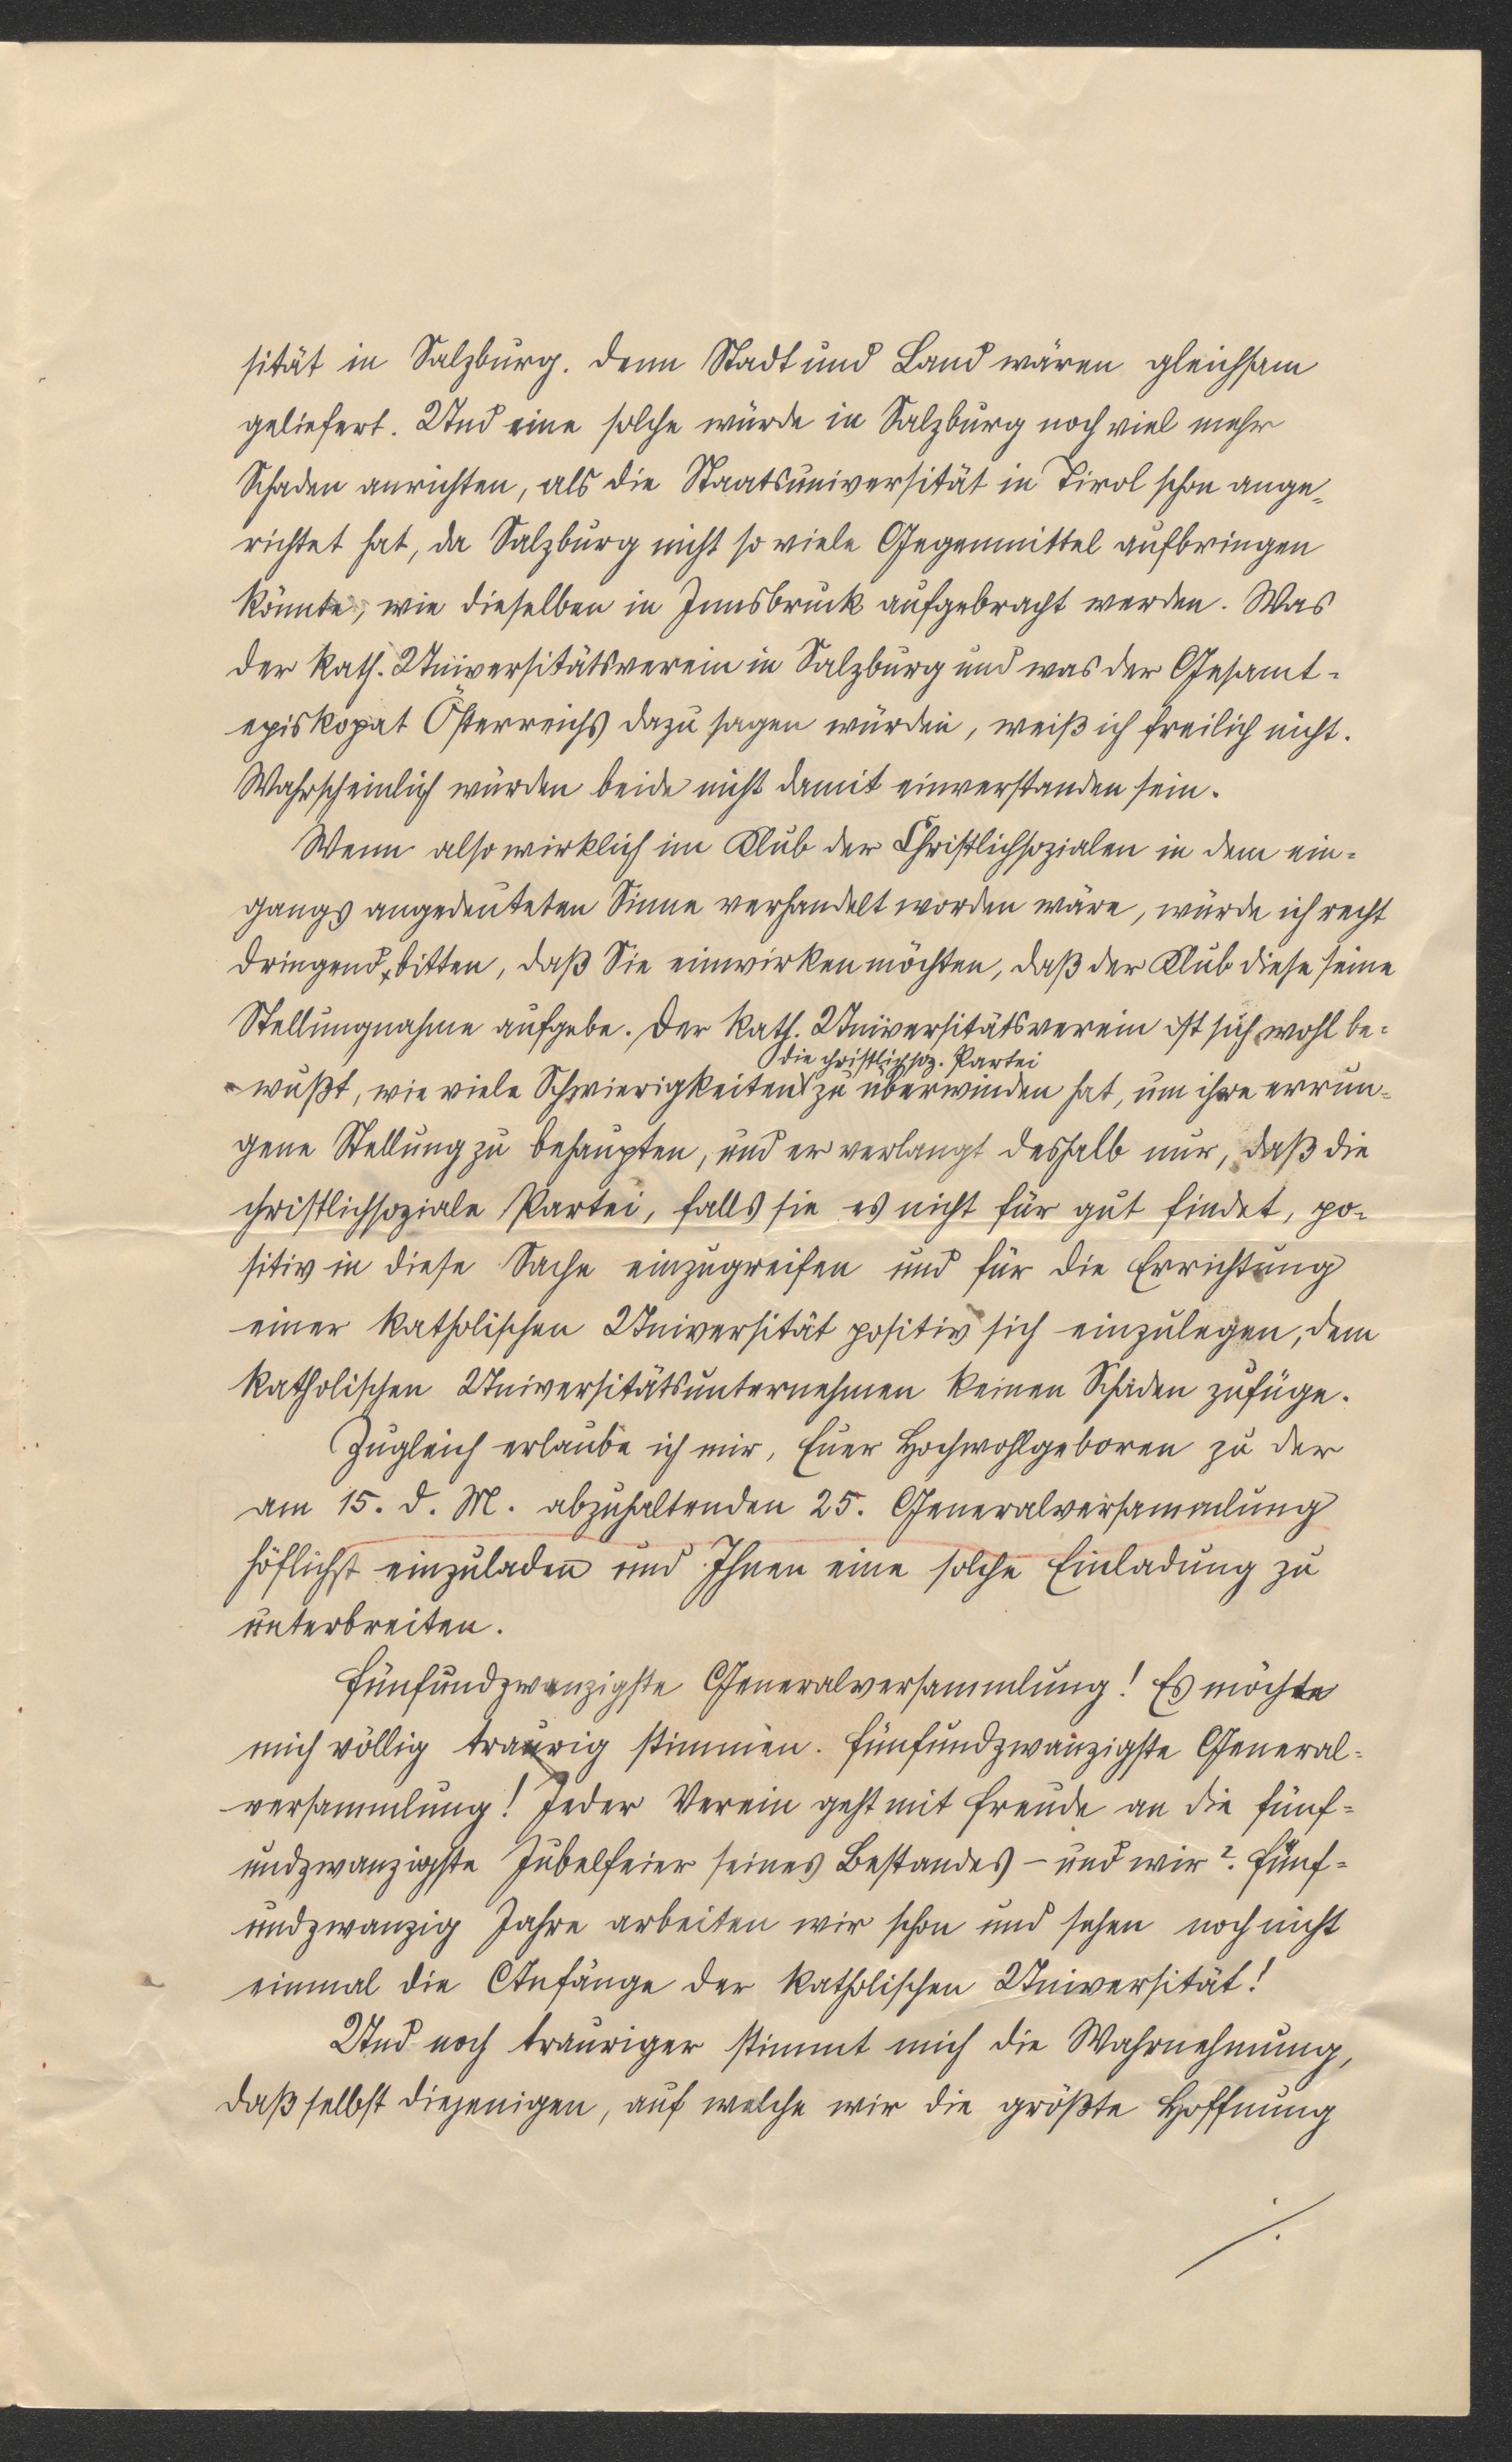 sität in Salzburg. Denn Stadt und Land wären gleichsam
geliefert. Und eine solche würde in Salzburg noch viel mehr
Schaden anrichten, als die Staatsuniversität in Tirol schon ange-
richtet hat, da Salzburg nicht so viele Gegenmittel aufbringen
könnte, wie dieselben in Innsbruck aufgebracht werden. Was
der kath. Universitätsverein in Salzburg und was der Gesamt-
episkopat Österreichs dazu sagen würden, weiß ich freilich nicht.
Wahrscheinlich würden beide nicht damit einverstanden sein.
Wenn also wirklich im Klub der Christlichsozialen in dem ein-
gangs angedeuteten Sinne verhandelt worden wäre, würde ich recht
dringend bitten, daß Sie einwirken möchten, daß der Klub diese seine
Stellungnahme aufgebe. Der kath. Universitätsverein ist sich wohl be-
die christlichsoz. Partei
wußt, wie viele Schwierigkeiten zu überwinden hat, um ihre errun-
gene Stellung zu behaupten, und er verlangt deshalb nur, daß die
christlichsoziale Partei, falls sie es nicht für gut findet, po-
sitiv in diese Sache einzugreifen und für die Errichtung
einer katholischen Universität positiv sich einzulegen, dem
katholischen Universitätsunternehmen keinen Schaden zufüge.
Zugleich erlaube ich mir, Euer Hochwohlgeboren zu der
am 15. d. M. abzuhaltenden 25. Generalversammlung
höflichst einzuladen und Ihnen eine solche Einladung zu
unterbreiten.
Fünfundzwanzigste Generalversammlung! Es möchte
mich völlig traurig stimmen. Fünfundzwanzigste General-
versammlung! Jeder Verein geht mit Freude an die fünf-
undzwanzigste Jubelfeier seines Bestandes – und wir? Fünf-
undzwanzig Jahre arbeiten wir schon und sehen noch nicht
einmal die Anfänge der katholischen Universität!
Und noch trauriger stimmt mich die Wahrnehmung,
daß selbst diejenigen, auf welche wir die größte Hoffnung
./.